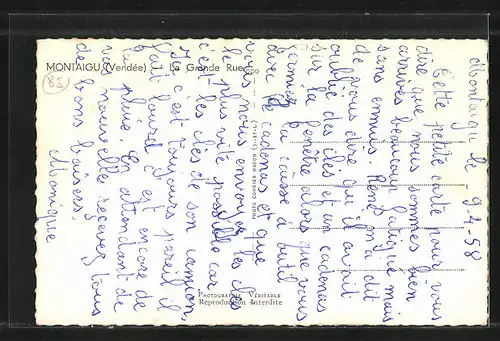 MONTAIGU (Vendée) - La Grande Rue
85
PHOTO COMBIER MACON (S.-ET-L.)
PHOTOGRAPHIE VÉRITABLE
Reproduction Interdite
Montaigu le 9-4-58
Cette petite carte pour vous
dire que nous sommes bien
arrivés beaucoup fatigué mais
sans ennuis. René m'a dit
de vous dire qu'il avait
oublié des clés et un cadenas
sur la fenêtre alors que vous
la caisse à outil
avec le cadenas et que
vous nous envoyer les clés
le plus vite possible car
c'est les clés de son camion,
Ici c'est toujours pareil il
fait lourd c'est encore de
la pluie. En attendant de
vos nouvelles recevez tous
de bons baisers.
Monique